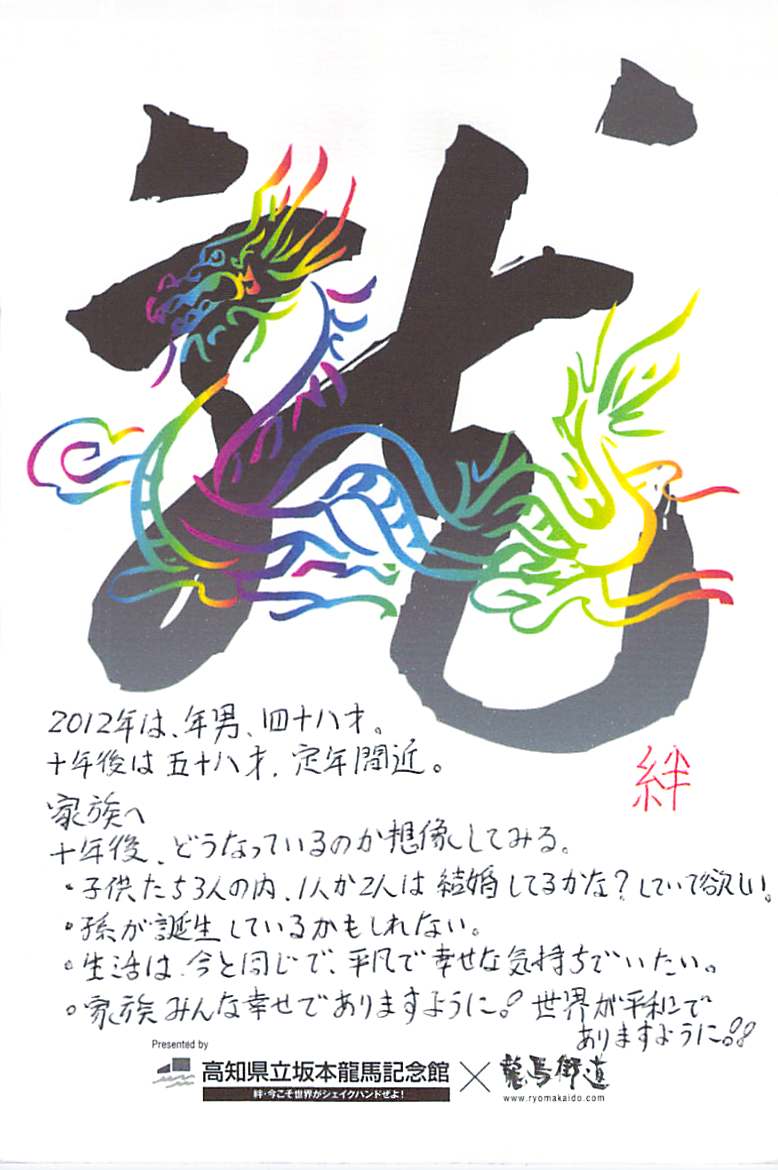 2012年は、年男、四十八才。
十年後は五十八才、定年間近。
絆
家族へ
十年後、どうなっているのか想像してみる。
・子供たち3人の内、1人か2人は結婚してるかな?していて欲しい。
・孫が誕生しているかもしれない。
・生活は、今と同じで、平凡で幸せな気持ちでいたい。
・家族みんな幸せでありますように。!世界が平和で
ありますように。!!
Presented by
高知県立坂本龍馬記念館×龍馬街道
絆・今こそ世界がシェイクハンドぜよ!
www.ryomakaido.com